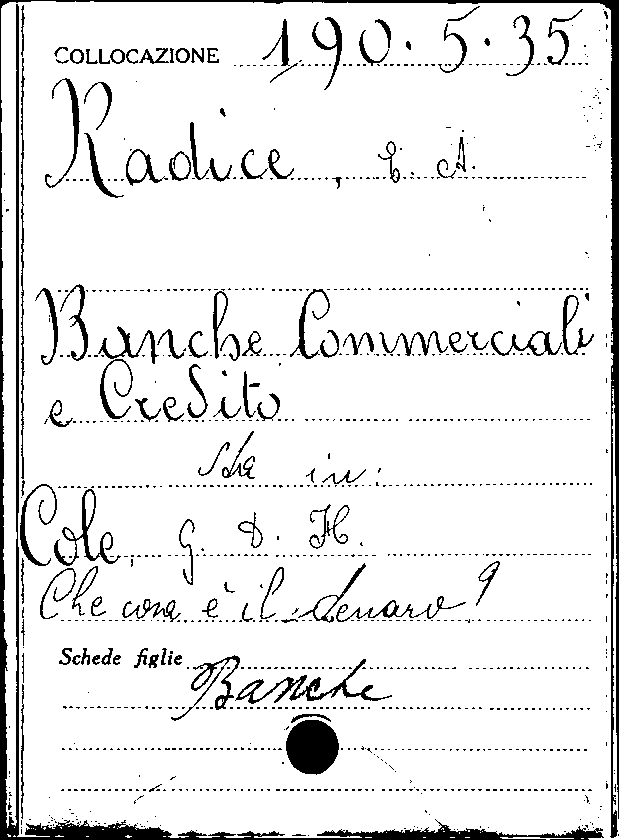 COLLOCAZIONE 190.5.35
Radice, E. A.
Banche Commerciali
e Credito
Sta in:
Cole, G. D. H.
Che cosa è il denaro?
Schede figlie
Banche